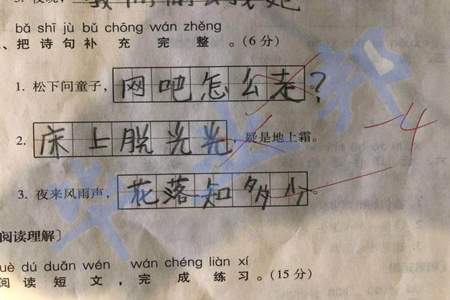 bǎ shī jù bǔ chōng wán zhěng
、把诗句补充完整。(6分)
1. 松下问童子，网吧怎么走？
2. 床上脱光光，疑是地上霜。
-4
3. 夜来风雨声，花落知多少。
阅读理解］
uè dú duǎn wén wán chéng liàn xí
阅读短文，完成练习。(15分)